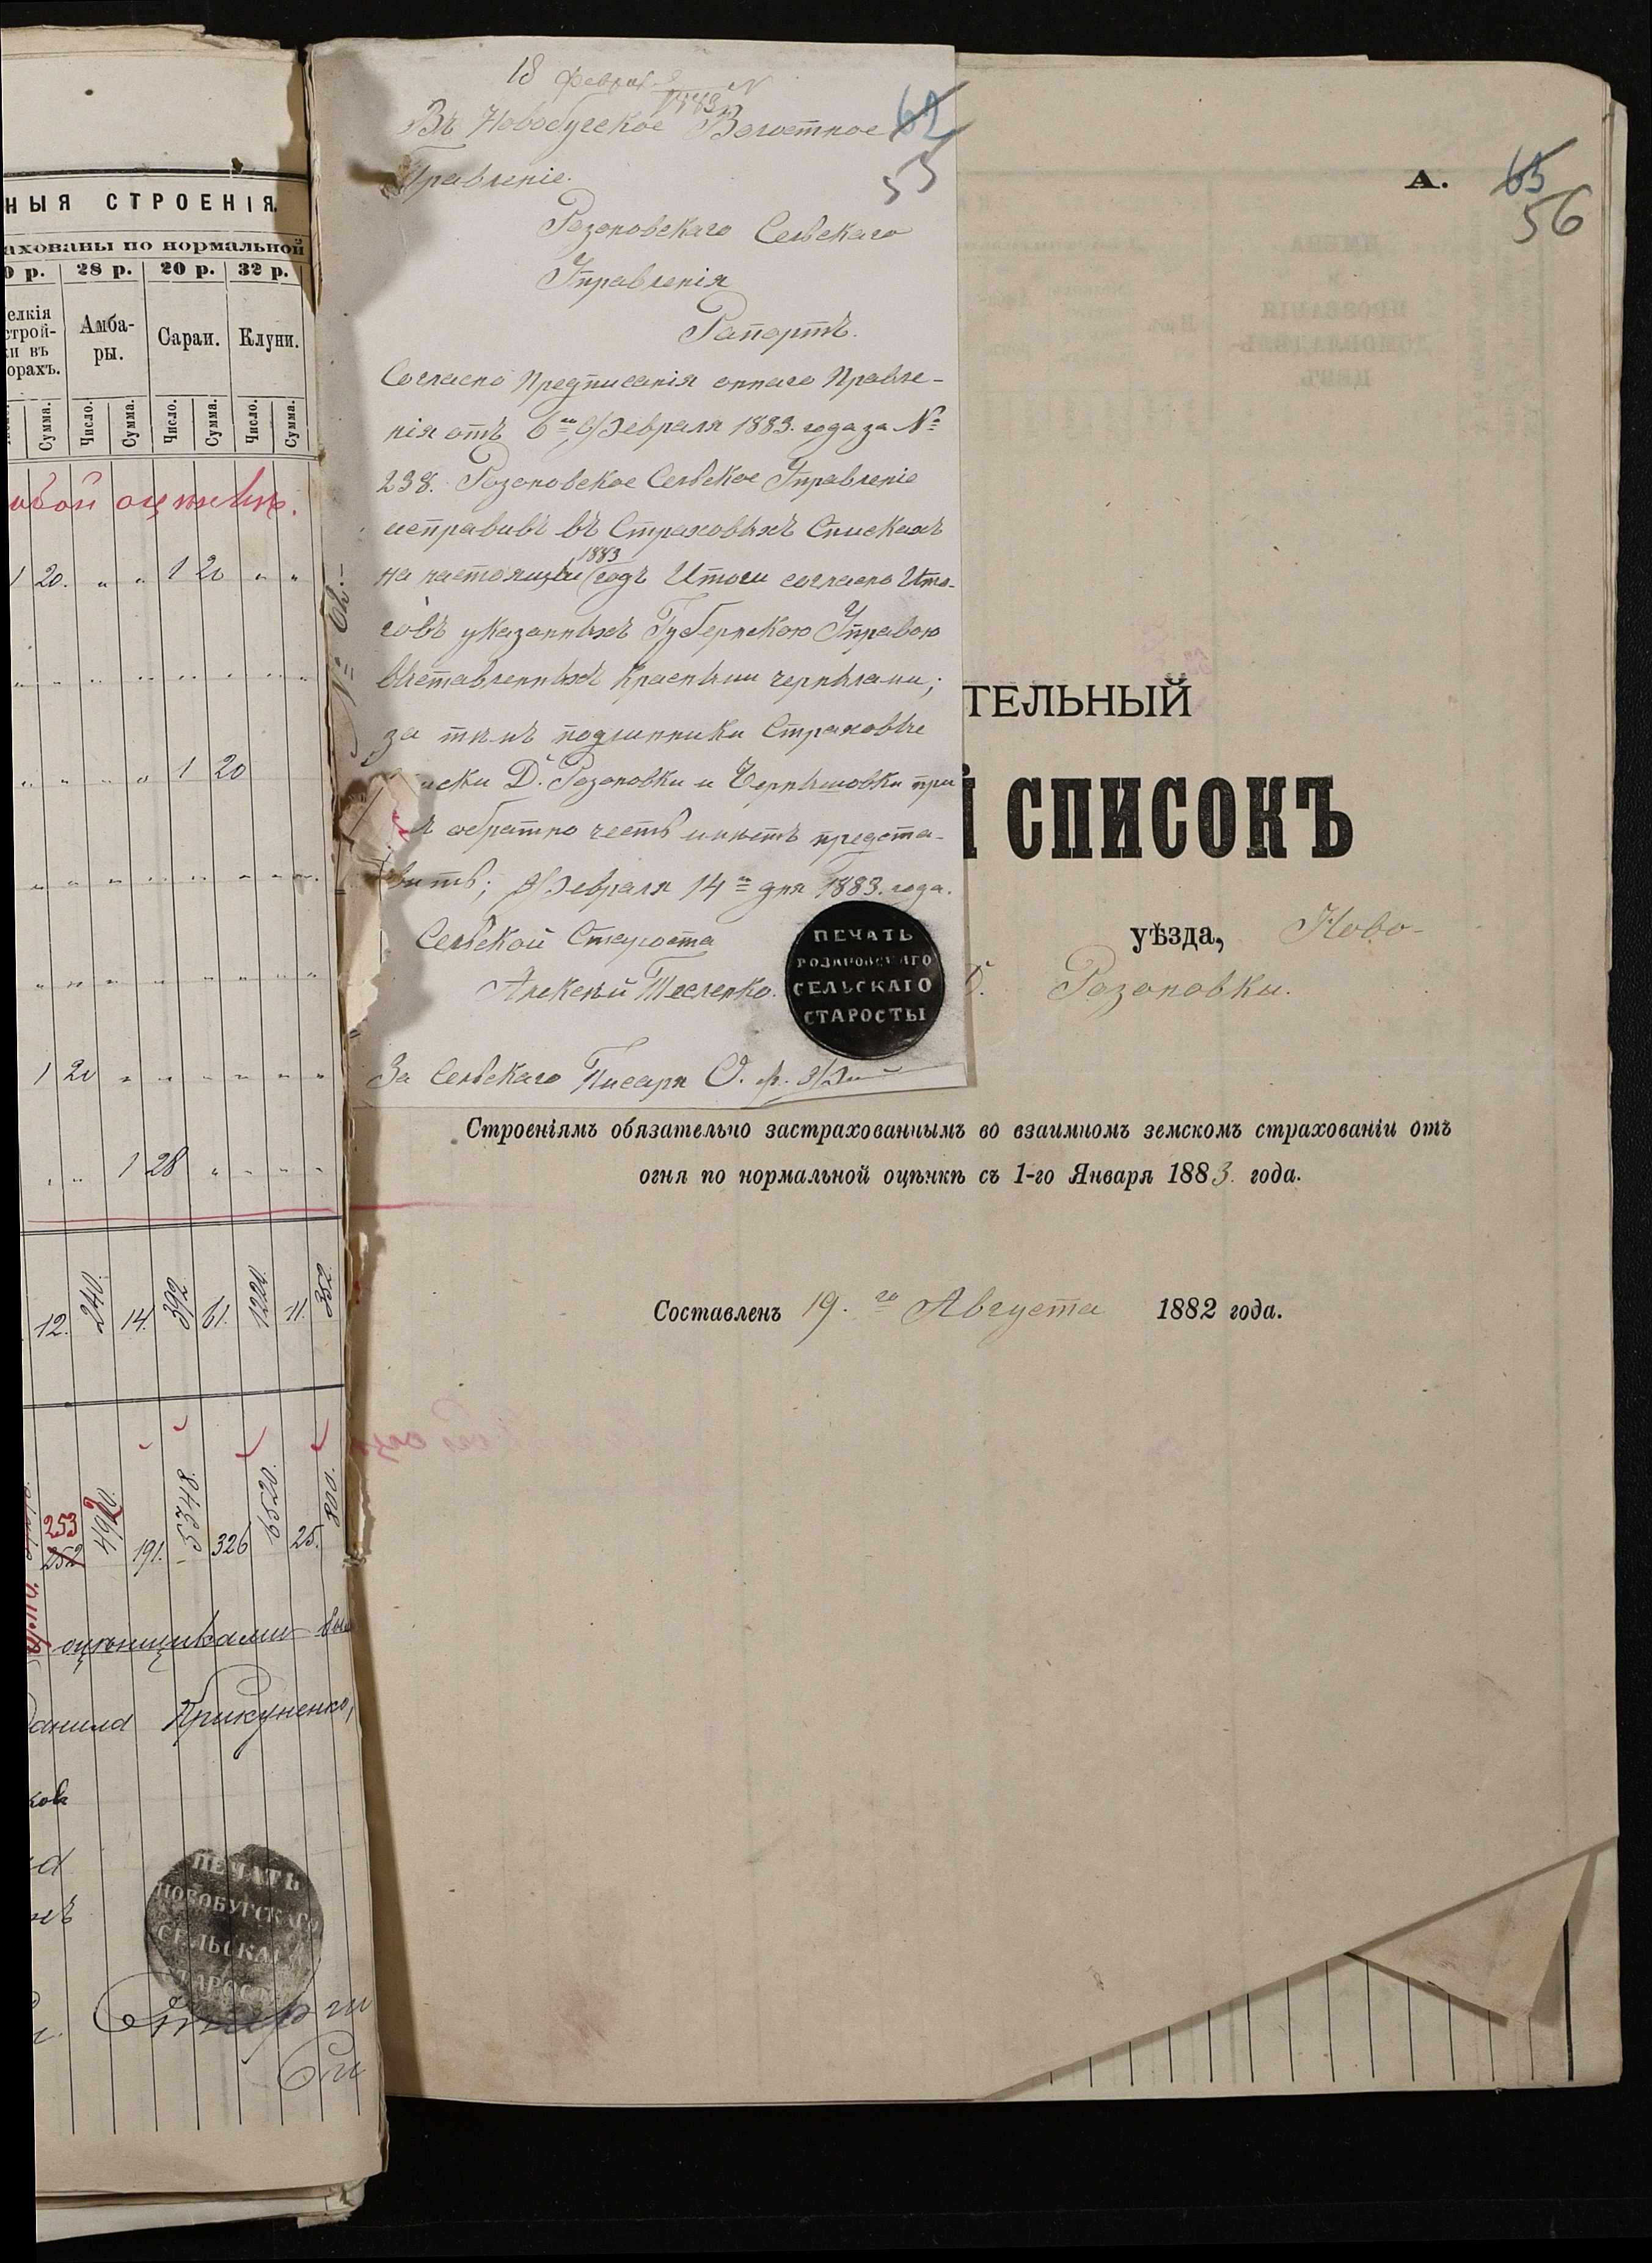 НЫЯ СТРОЕНІЯ.
ахованы по нормальной
0 р. 28 р. 20 р. 32 р.
елкія
строй-
ки въ
орахъ.
Амба-
ры.
Сараи.
Клуни.
Сумма. Число. Сумма. Число. Сумма. Число. Сумма.
овой оцѣнкѣ.
1 20. „ „ 1 20 „ „
„ „ „ „ 1 20
1 20 „ „ „ „ „ „
„ „ 1 28 „ „ „ „
12. 240. 14. 392 61. 1220. 11. 352.
253
252 191. 5348. 326 6520. 25. 800.
оцѣнщиками бы
Данила Прикуненко,
ков
ПЕЧАТЬ
НОВОБУГСКАГО
СЕЛЬСКАГО
СТАРОС
18 Феврал 1883
Въ Новобугское Волостное
Правленіе.
62
55
Розоновскаго Сельскаго
Управленія
Рапортъ.
Согласно Предписанія оннаго Правле-
нія отъ 6го Февраля 1883. года за №
238. Розоновское Сельское Управленіе
исправивъ въ Страховыхъ Спискахъ
на настоящій 1883 годъ Итоги согласно Ито-
говъ указанныхъ Губернскою Управою
выставленныхъ красными чернилами;
за тѣмъ подлинники Страховые
иски Д. Розоновки и Чернышовки при
обратно честь имѣетъ предста-
вить; Февраля 14го дня 1883. года.
Сельской Староста
Алексѣй Тесленко.
ПЕЧАТЬ
РОЗАНОВСКАГО
СЕЛЬСКАГО
СТАРОСТЫ
За Сельскаго Писаря
А.
63
56
ТЕЛЬНЫЙ
Й СПИСОКЪ
уѣзда, Ново-
Розоновки.
Строеніямъ обязательно застрахованнымъ во взаимномъ земскомъ страхованіи отъ
огня по нормальной оцѣнкѣ съ 1-го Января 1883. года.
Составленъ 19.го Августа 1882 года.